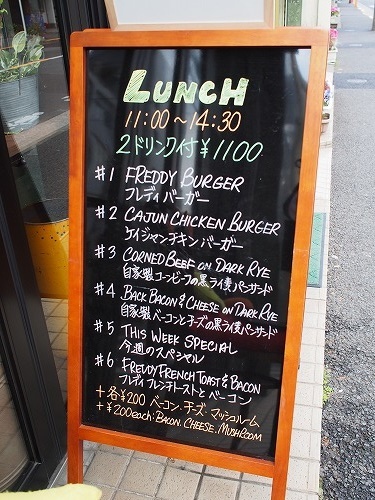 LUNCH
11:00〜14:30
2ドリンク付¥1100
#1 FREDDY BURGER
フレディバーガー
#2 CAJUN CHICKEN BURGER
ケイジャンチキンバーガー
#3 CORNED BEEF ON DARK RYE
自家製コーンビーフの黒ライ麦パンサンド
#4 BACK BACON & CHEESE ON DARK RYE
自家製ベーコンとチーズの黒ライ麦パンサンド
#5 THIS WEEK SPECIAL
今週のスペシャル
#6 FREDDY FRENCH TOAST & BACON
フレディフレンチトーストとベーコン
+各¥200 ベーコン.チーズ マッシュルーム
+¥200each.BACON.CHEESE.MUSHROOM